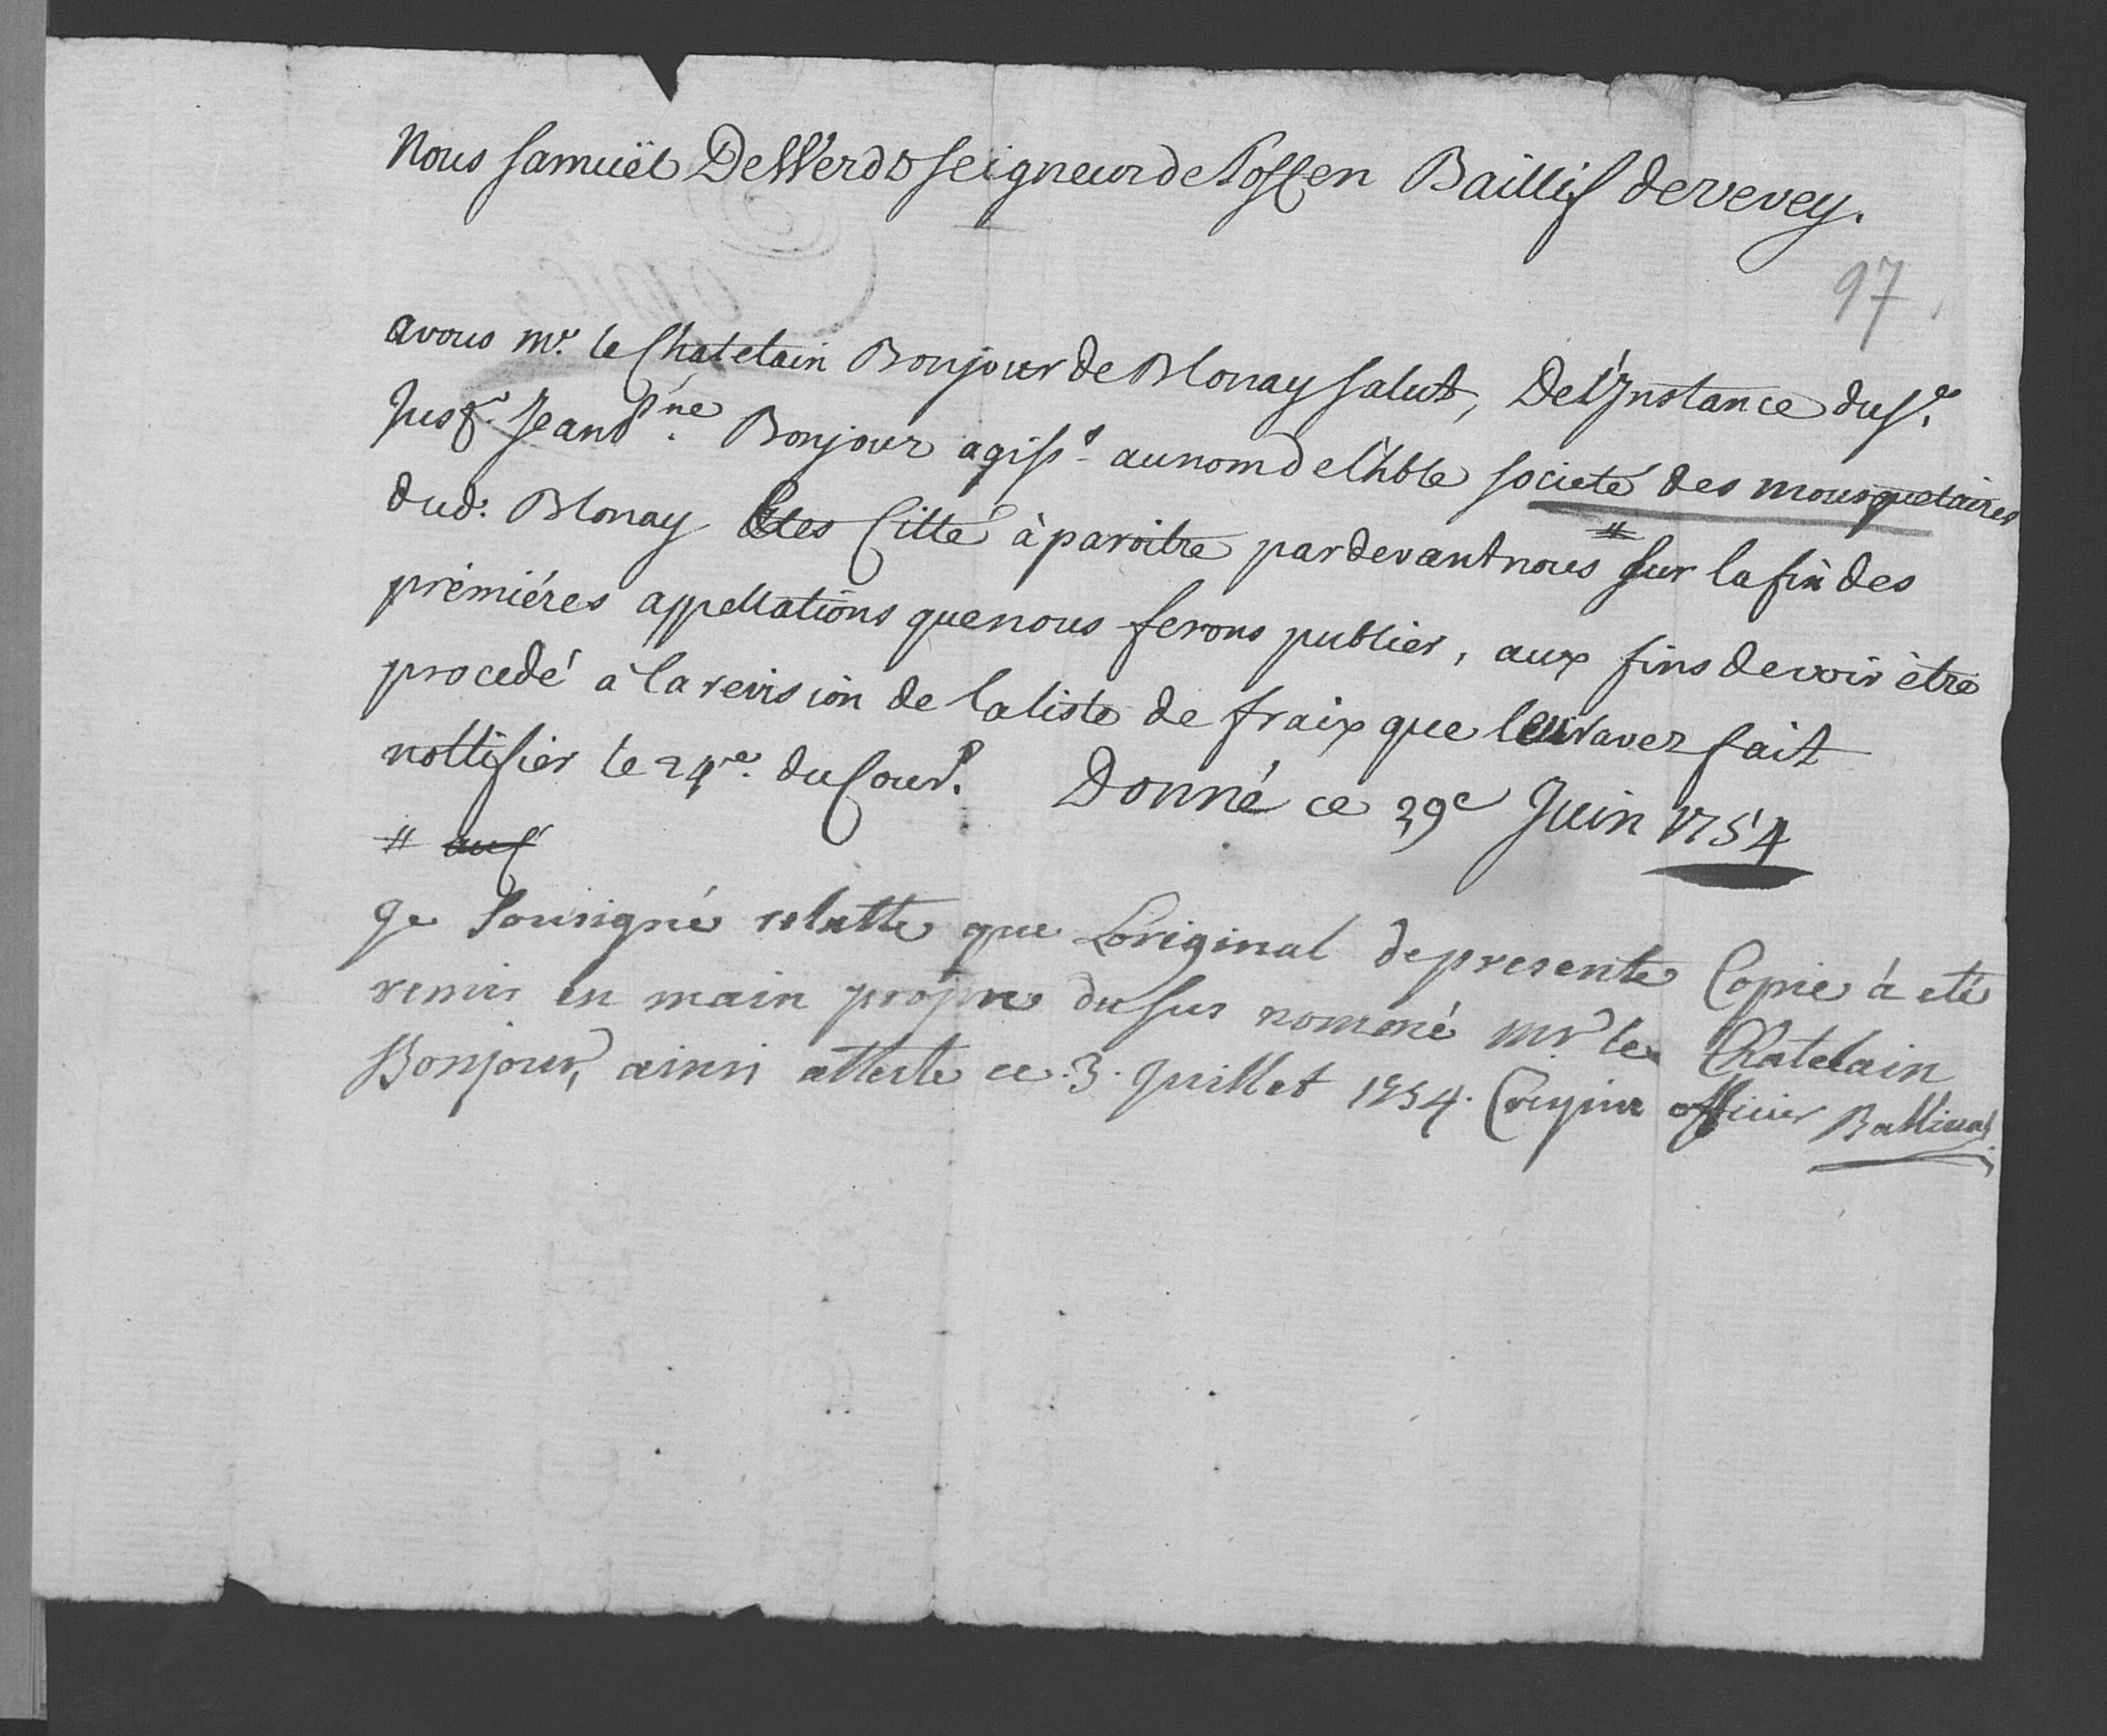 Nous Samuël De Werdt seigneur de Toffen Baillif de vevey.
97
avous mr. le Chatelain Bonjour de Blonay salut, De l'Jnstance du Sr.
Jusr. Jean Pne. Bonjour agisst. au nom de l'hble societé des mousquetaires
dud. Blonay Etes Citté à paroitre par devant nous # sur la fin des
prémiéres appellations que nous ferons publier, aux fins de voir être
procedé a la revision de la liste de fraix que leur avez fait
nottifier le 24e. du Cour.t Donné ce 29e Juin 1754
# au
Je Sousigné relatte que Loriginal de presente Copie à eté
remis en main propre du sus nommé mr. le Chatelain
Bonjour, ainsi atteste ce 3. Juillet 1754. officier Ballival.